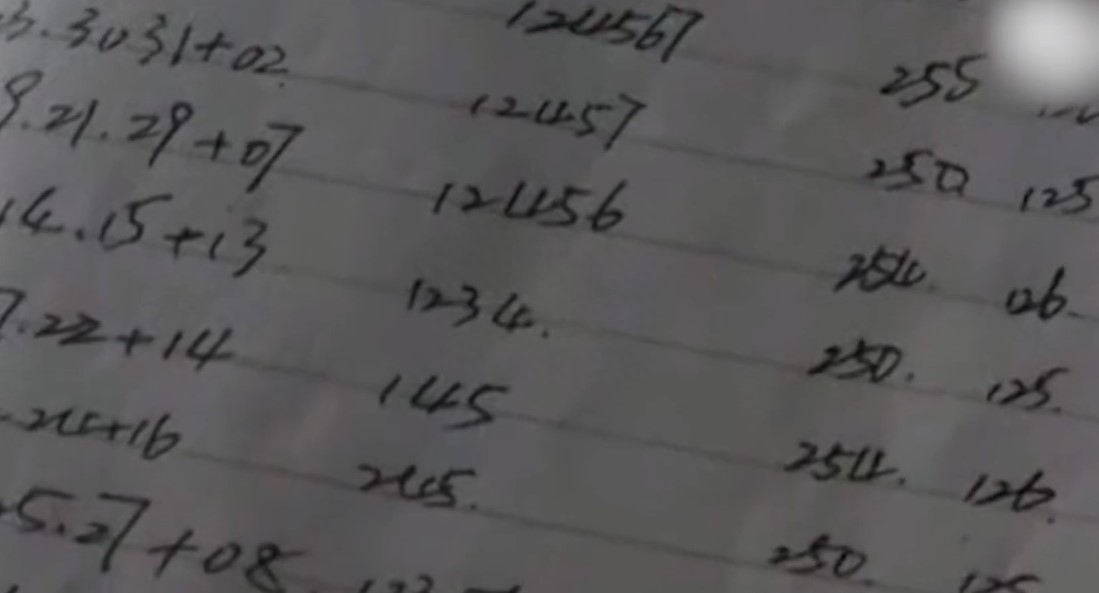 3.30 31+02 124567 255
9.21.29+07 12457 250 125
14.15+13 12456 254. 126.
7.22+14 1234. 250. 125.
24+16 145 254. 126.
5.27+08 245. 250.